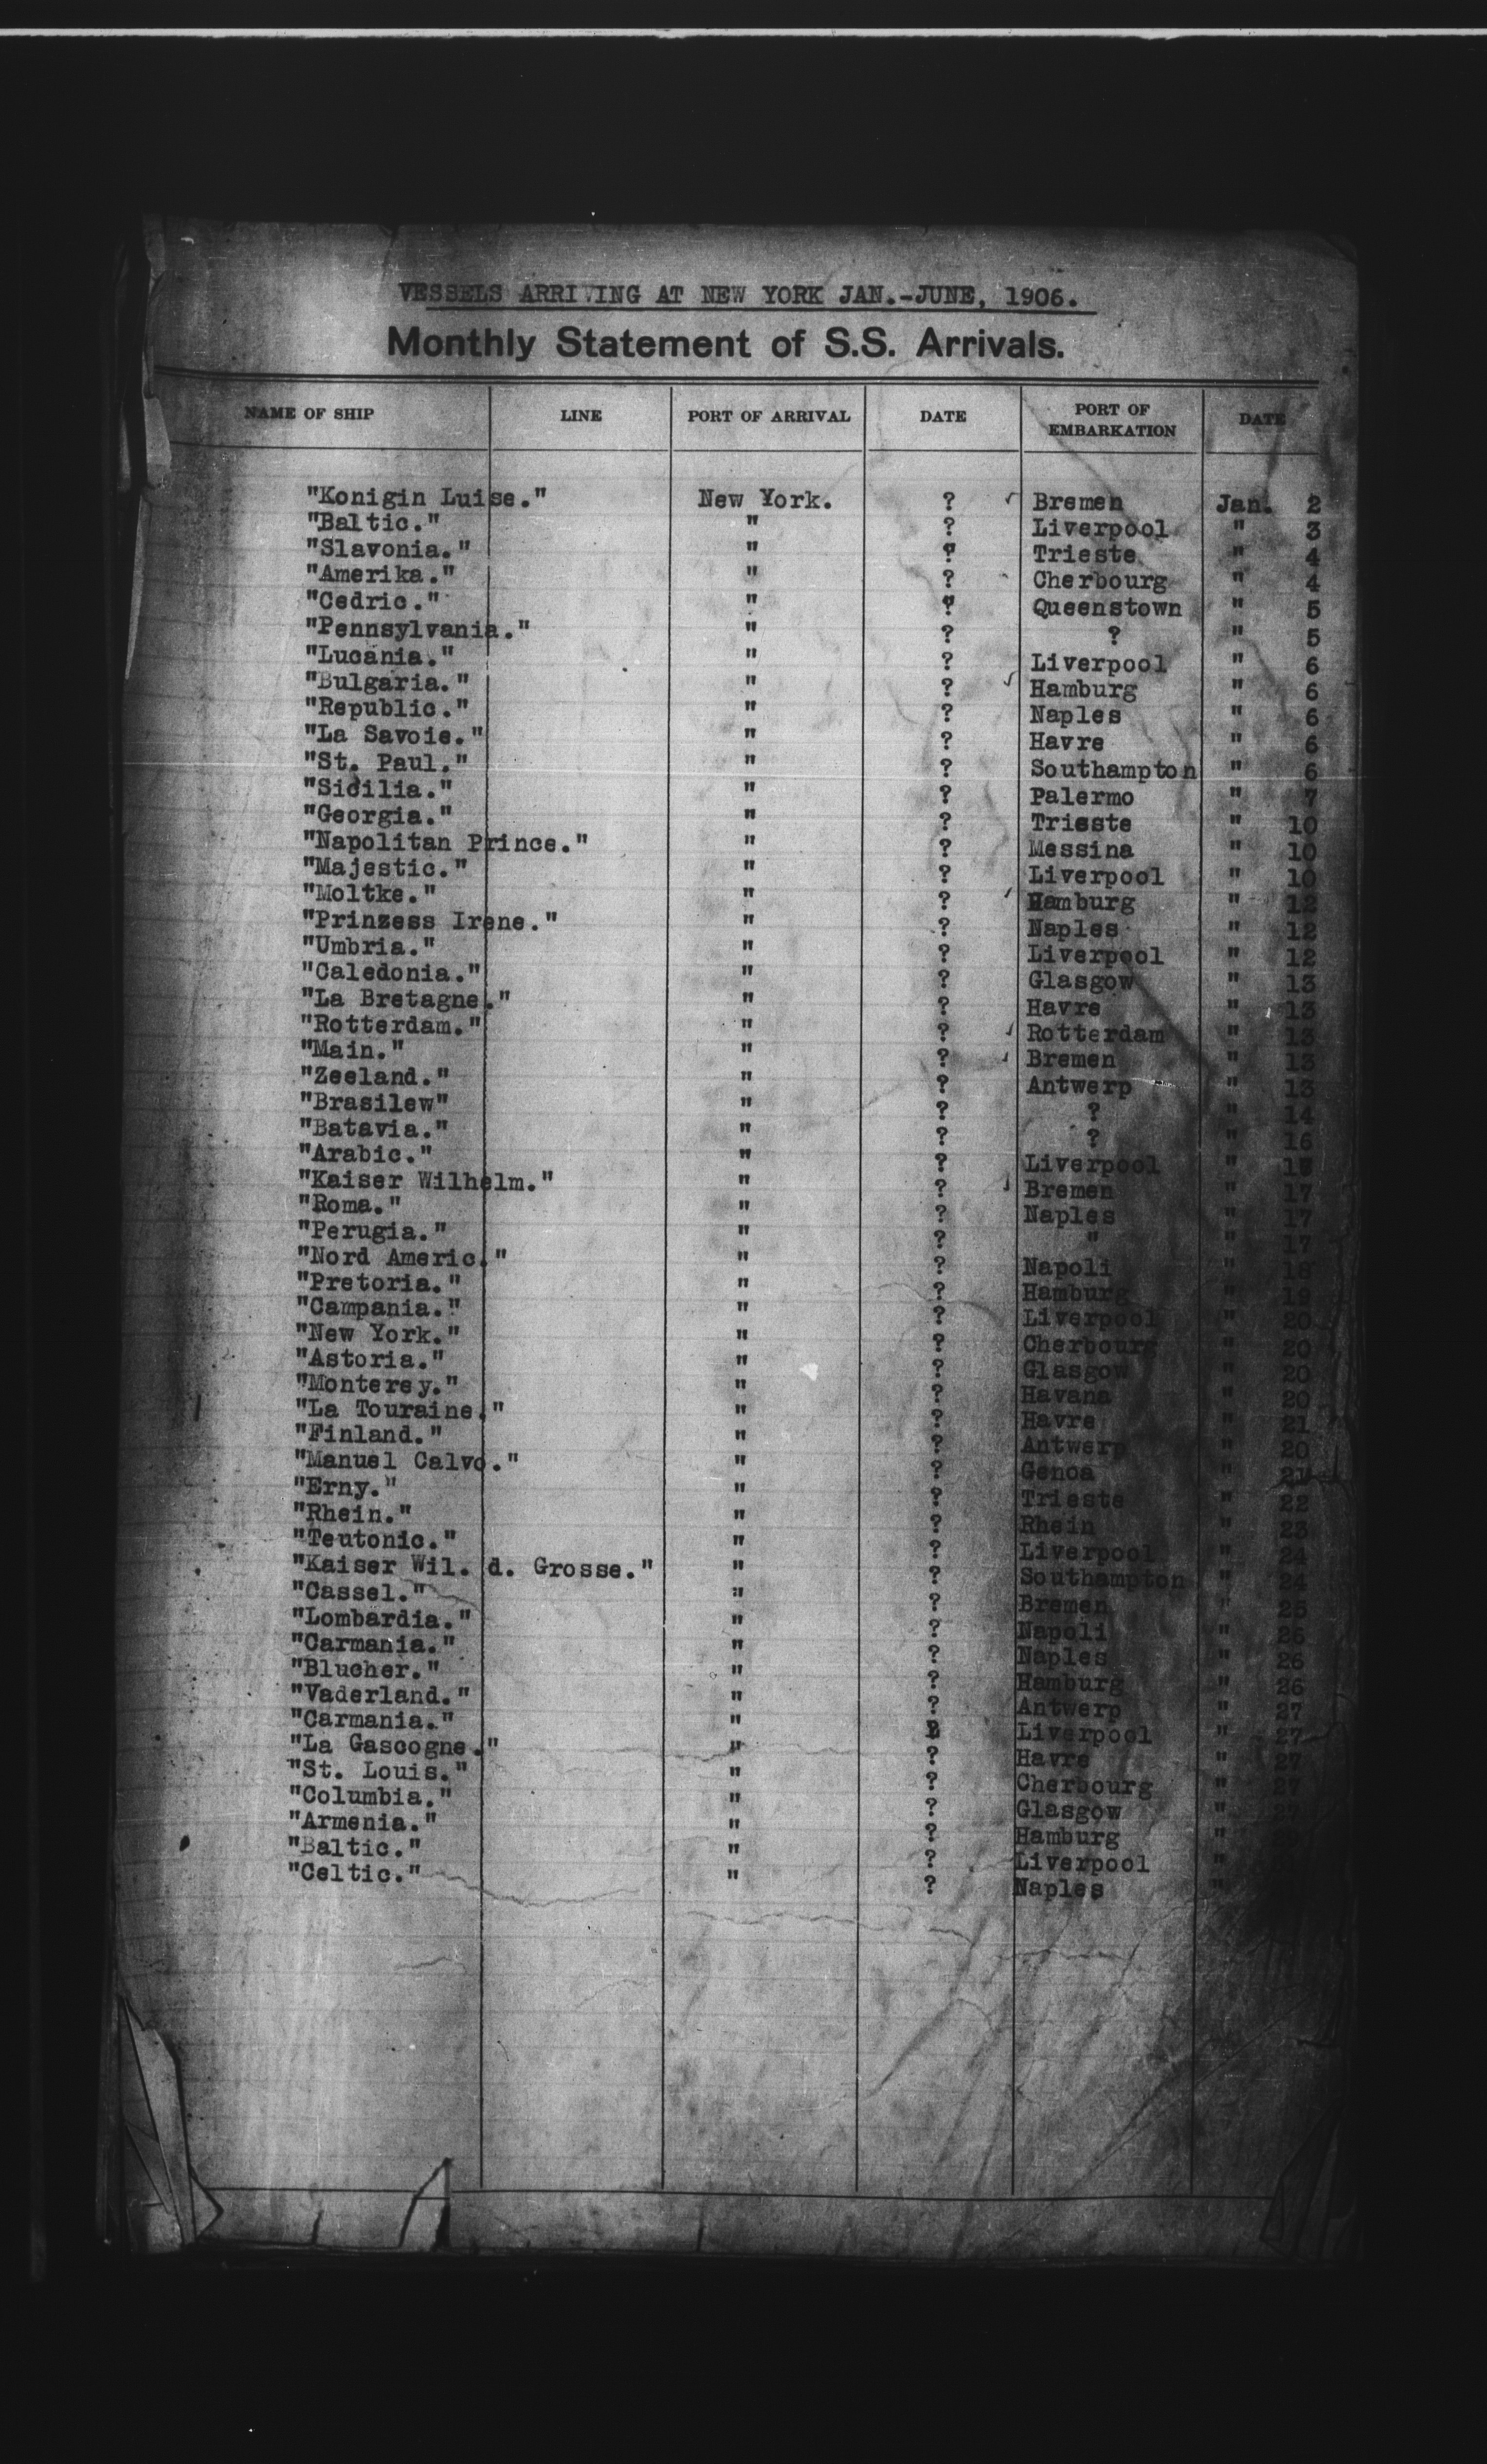 VESSELS ARRIVING AT NEW YORK JAN.-JUNE, 1906.
Monthly Statement of S.S. Arrivals.
NAME OF SHIP LINE PORT OF ARRIVAL DATE PORT OF EMBARKATION DATE
"Konigin Luise." New York. ? ✓ Bremen Jan. 2
"Baltic." " ? Liverpool " 3
"Slavonia." " ? Trieste " 4
"Amerika." " ? Cherbourg " 4
"Cedric." " ? Queenstown " 5
"Pennsylvania." " ? ? " 5
"Lucania." " ? Liverpool " 6
"Bulgaria." " ? ✓ Hamburg " 6
"Republic." " ? Naples " 6
"La Savoie." " ? Havre " 6
"St. Paul." " ? Southampton " 6
"Sicilia." " ? Palermo " 7
"Georgia." " ? Trieste " 10
"Napolitan Prince." " ? Messina " 10
"Majestic." " ? Liverpool " 10
"Moltke." " ? ✓ Hamburg " 12
"Prinzess Irene." " ? Naples " 12
"Umbria." " ? Liverpool " 12
"Caledonia." " ? Glasgow " 13
"La Bretagne." " ? Havre " 13
"Rotterdam." " ? ✓ Rotterdam " 13
"Main." " ? ✓ Bremen " 13
"Zeeland." " ? Antwerp " 13
"Brasilew" " ? ? " 14
"Batavia." " ? ? " 16
"Arabic." " ? Liverpool "
"Kaiser Wilhelm." " ? ✓ Bremen " 17
"Roma." " ? Naples " 17
"Perugia." " ? " " 17
"Nord Americ." " ? Napoli " 18
"Pretoria." " ? Hamburg " 19
"Campania." " ? Liverpool " 20
"New York." " ? Cherbourg " 20
"Astoria." " ? Glasgow " 20
"Monterey." " ? Havana " 20
"La Touraine." " ? Havre " 21
"Finland." " ? Antwerp " 20
"Manuel Calvo." " ? Genoa " 21
"Erny." " ? Trieste " 22
"Rhein." " ? Rhein " 23
"Teutonic." " ? Liverpool " 24
"Kaiser Wil. d. Grosse." " ? Southampton " 24
"Cassel." " ? Bremen " 25
"Lombardia." " ? Napoli " 26
"Carmania." " ? Naples " 26
"Blucher." " ? Hamburg " 26
"Vaderland." " ? Antwerp " 27
"Carmania." " Liverpool " 27
"La Gascogne." " ? Havre " 27
"St. Louis." " ? Cherbourg " 27
"Columbia." " ? Glasgow "
"Armenia." " ? Hamburg "
"Baltic." " ? Liverpool "
"Celtic." " ? Naples "